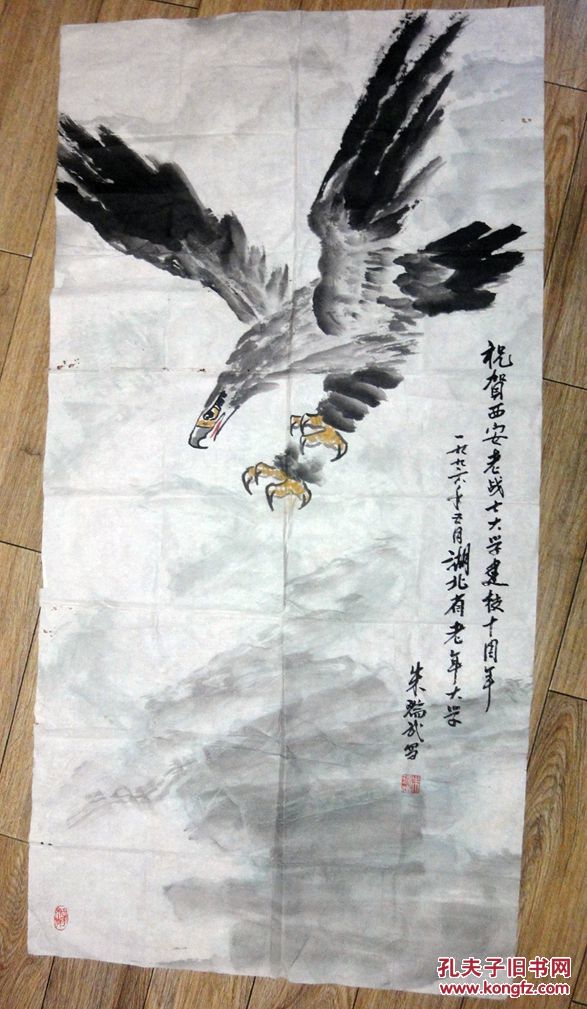 祝贺西安老战士大学建校十周年
一九九六年五月湖北省老年大学
朱瑞武写
孔夫子旧书网
www.kongfz.com